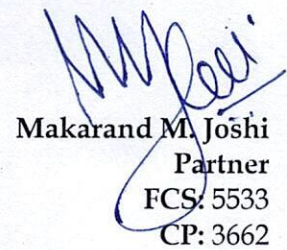 Makarand M. Joshi
Partner
FCS: 5533
CP: 3662